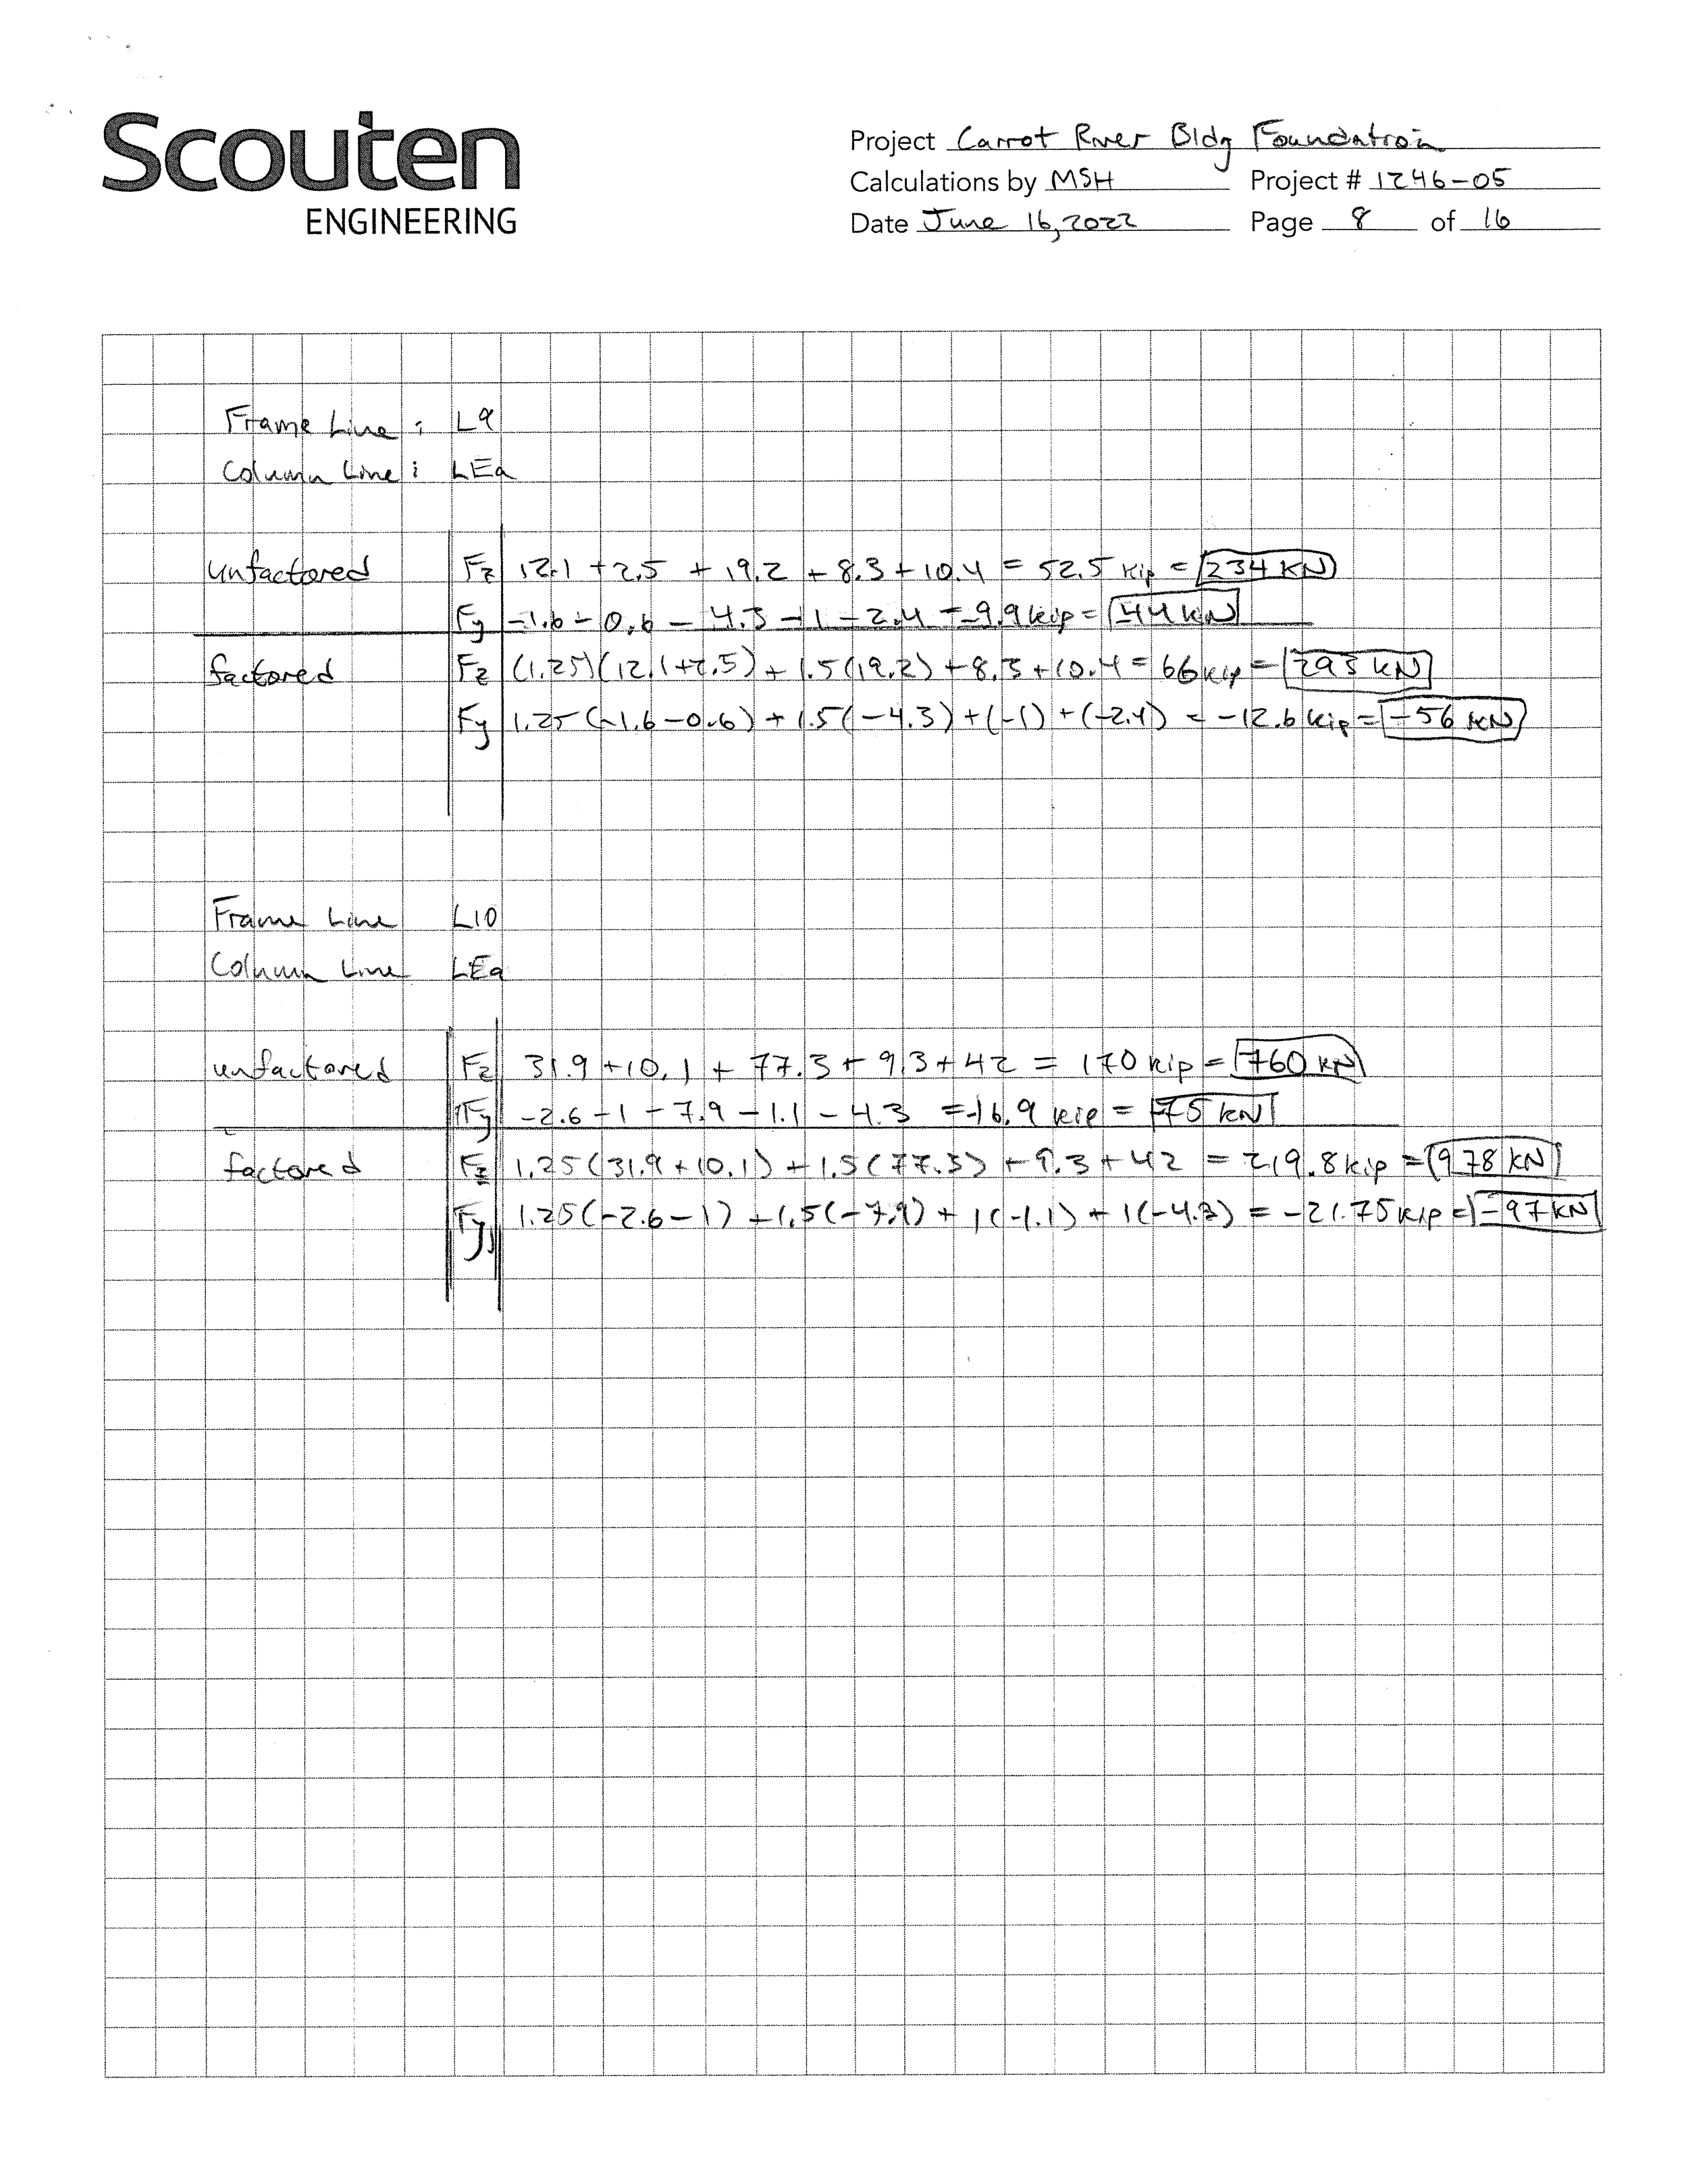 Scouten
ENGINEERING
Project Carrot River Bldg Foundation
Calculations by MSH Project # 1246-05
Date June 16, 2022 Page 8 of 16
Frame Line : L9
Column Line : LEa
unfactored Fz 12.1 + 2.5 + 19.2 + 8.3 + 10.4 = 52.5 kip = 234 kN
Fy -1.6 - 0.6 - 4.3 - 1 - 2.4 = -9.9 kip = -44 kN
factored Fz (1.25)(12.1+2.5) + 1.5(19.2) + 8.3 + 10.4 = 66 kip = 293 kN
Fy 1.25(-1.6-0.6) + 1.5(-4.3) + (-1) + (-2.4) = -12.6 kip = -56 kN
Frame Line L10
Column Line LEa
unfactored Fz 31.9 + 10.1 + 77.3 + 9.3 + 42 = 170 kip = 760 kN
Fy -2.6 - 1 - 7.9 - 1.1 - 4.3 = -16.9 kip = -75 kN
factored Fz 1.25(31.9 + 10.1) + 1.5(77.3) + 9.3 + 42 = 219.8 kip = 978 kN
Fy 1.25(-2.6-1) + 1.5(-7.9) + 1(-1.1) + 1(-4.3) = -21.75 kip = -97 kN